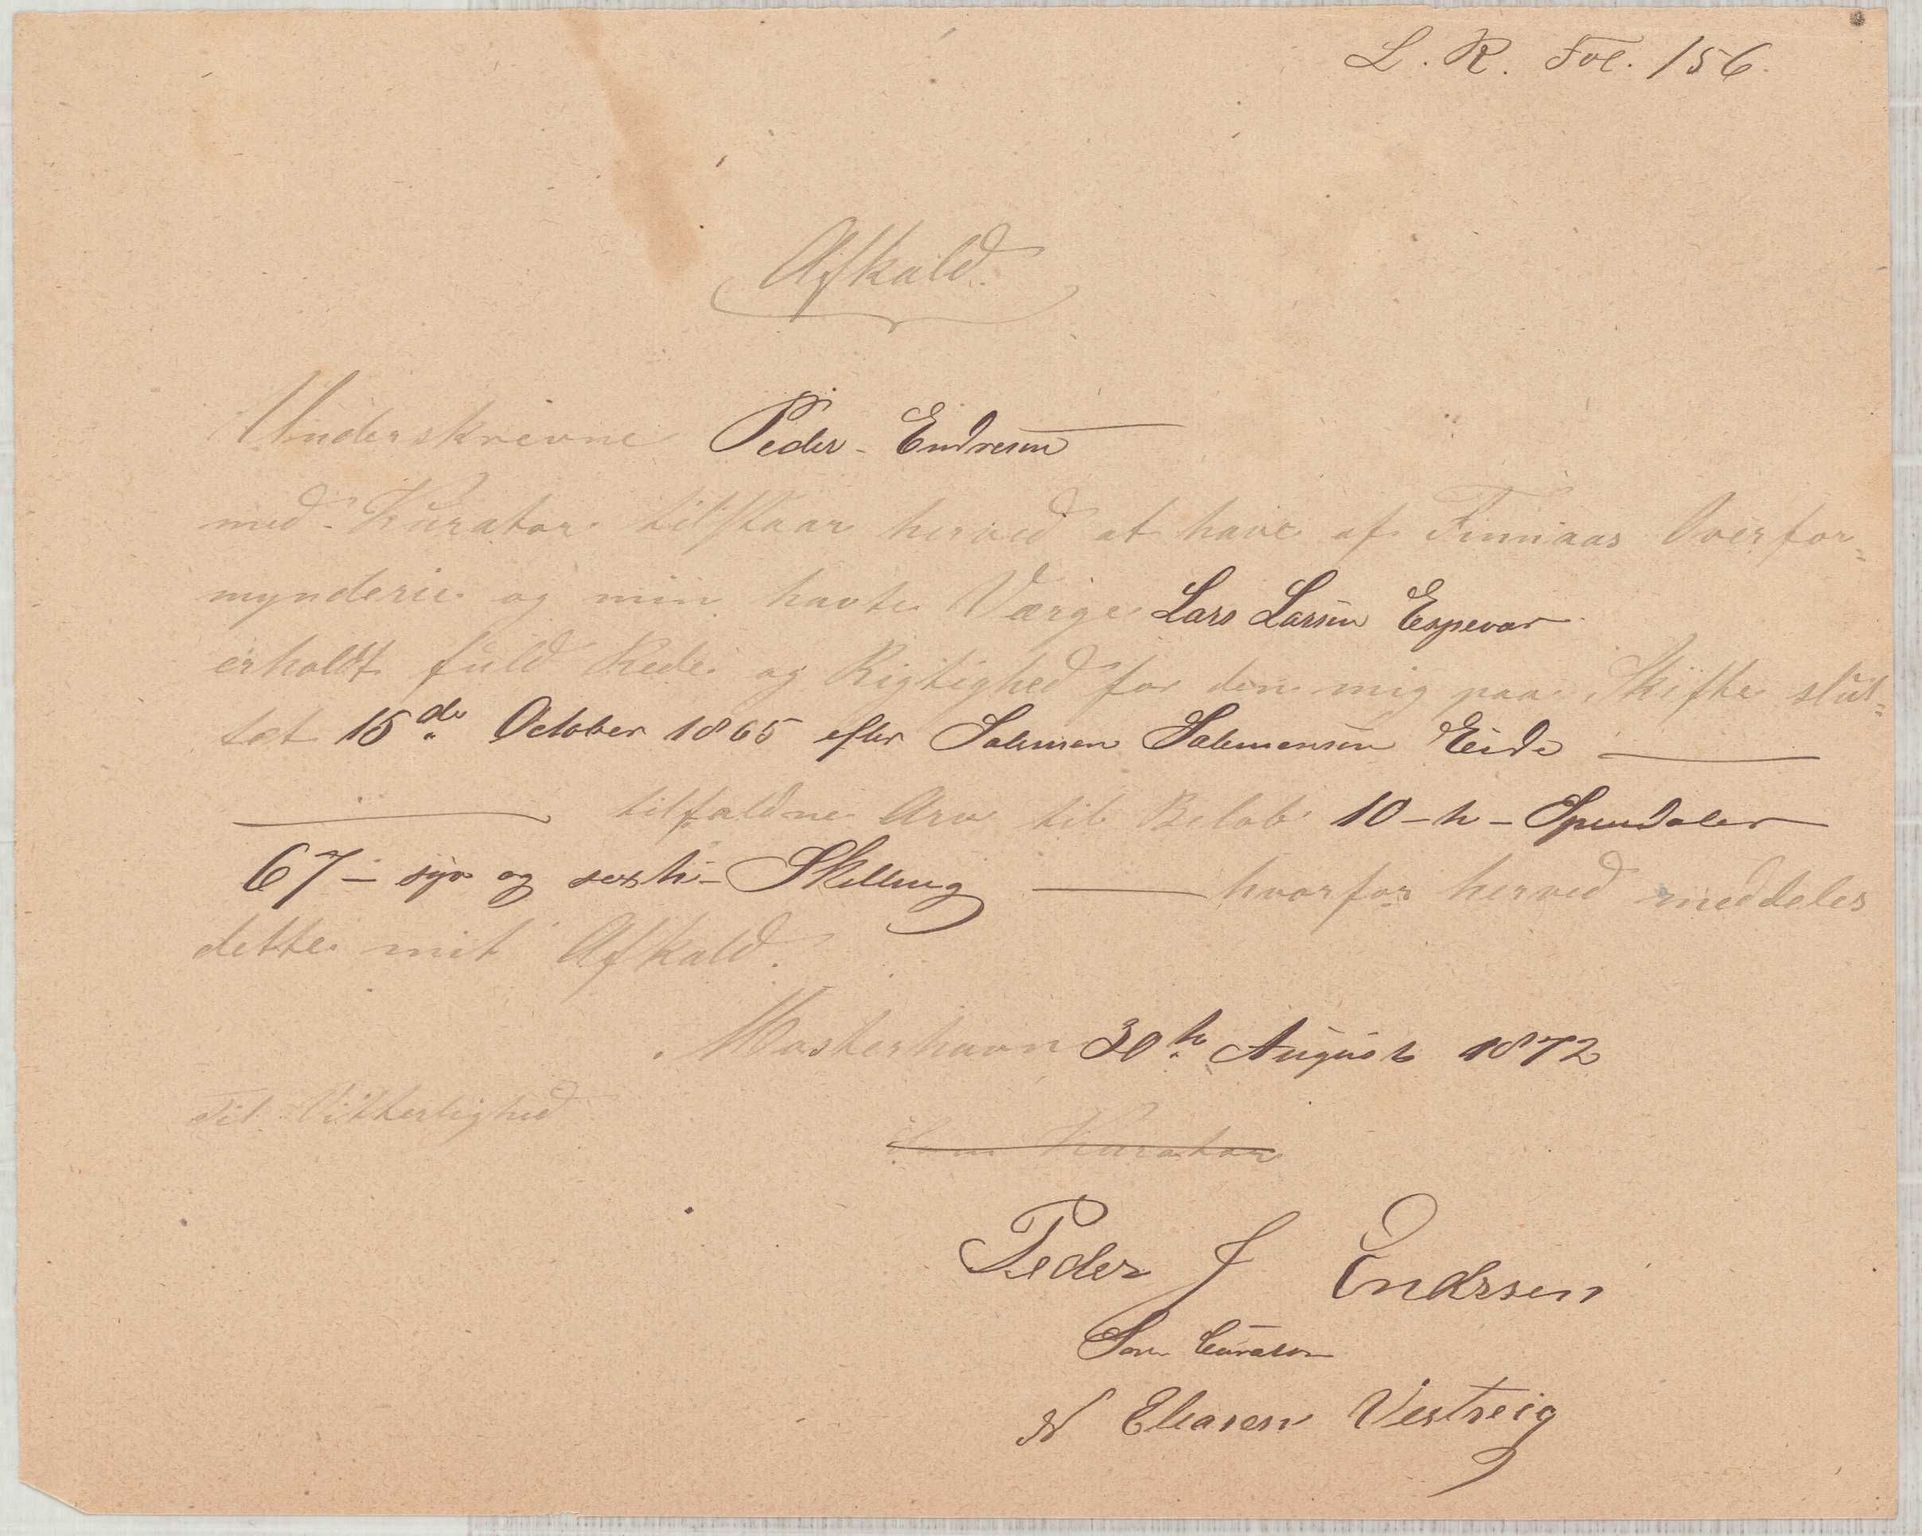 L. R. Fol. 156.
Afkald.
Underskrevne Peder Endresen
med Kurator tilstaar herved at have af Finnaas Overfor-
mynderie og min havte Værge Lars Larsen Espevær
erholdt fuld Rede og Rigtighed for den mig paa Skifte slut-
tet 15de October 1865 efter Salemon Salemonsen Eide
tilfaldne Arv til Beløb 10 - ti - Speciedaler
67 - syv og sexti - Skilling hvorfor herved meddeles
dette mit Afkald.
Mosterhavn 30te August 1872
Til Vitterlighed
Som Kurator
Peder J Endrsen
Som Curator
N Eliasen Vestreig